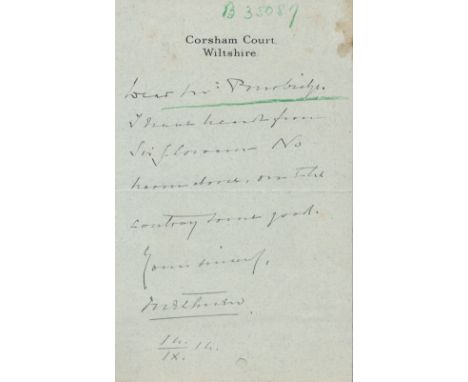 B 35087
Corsham Court.
Wiltshire.
Dear Mr:
I have heard from
Sir No
harm done, on the
contrary some good.
Yours sincerely,
Methuen
14/IX. 14.